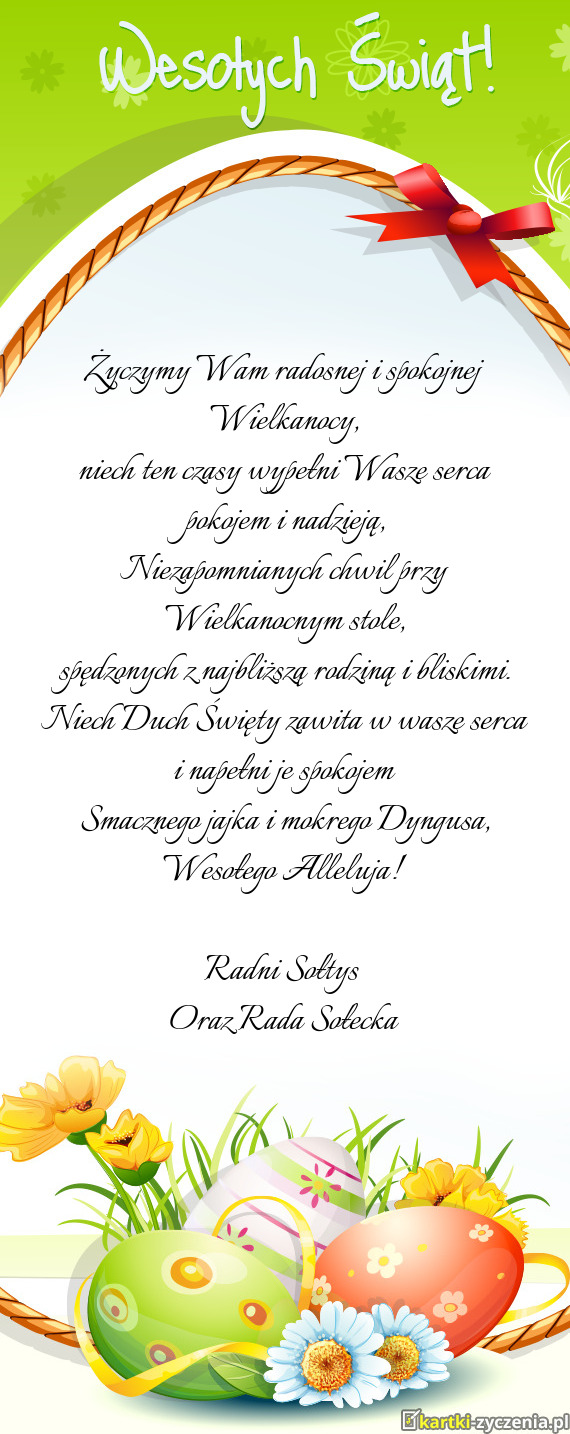 Wesołych Świąt!
Życzymy Wam radosnej i spokojnej
Wielkanocy,
niech ten czasy wypełni Wasze serca
pokojem i nadzieją,
Niezapomnianych chwil przy
Wielkanocnym stole,
spędzonych z najbliższą rodziną i bliskimi.
Niech Duch Święty zawita w wasze serca
i napełni je spokojem
Smacznego jajka i mokrego Dyngusa,
Wesołego Alleluja!
Radni Sołtys
Oraz Rada Sołecka
kartki-zyczenia.pl